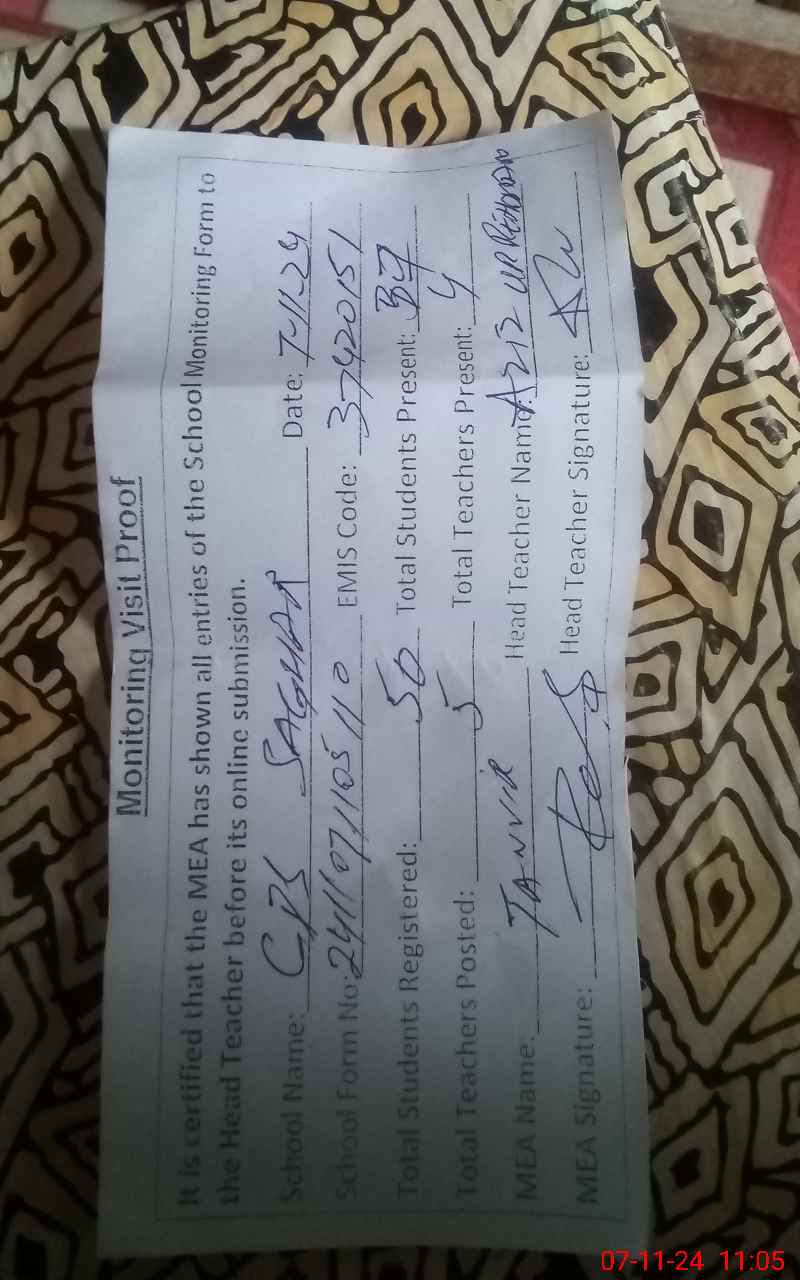 Monitoring Visit Proof
It is certified that the MEA has shown all entries of the School Monitoring Form to
the Head Teacher before its online submission.
School Name: GPS SAGHAR Date: 7-11-24
School Form No: 2411071105110 EMIS Code: 37420151
Total Students Registered: 50 Total Students Present:
Total Teachers Posted: 5 Total Teachers Present: 4
MEA Name: TANVIR Head Teacher Name: AZIZ UR REHMAN
MEA Signature: Head Teacher Signature:
07-11-24 11:05